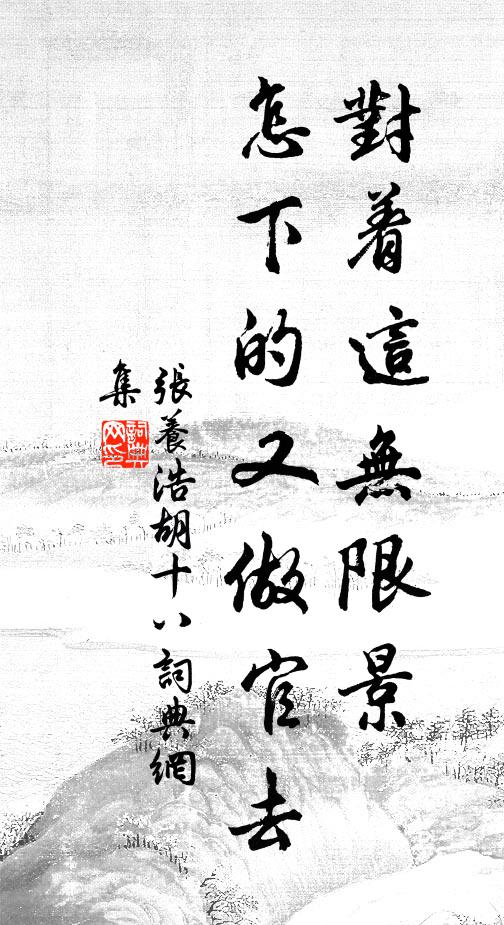 對着這無限景
怎下的又做官去
張養浩胡十八詞典網
集